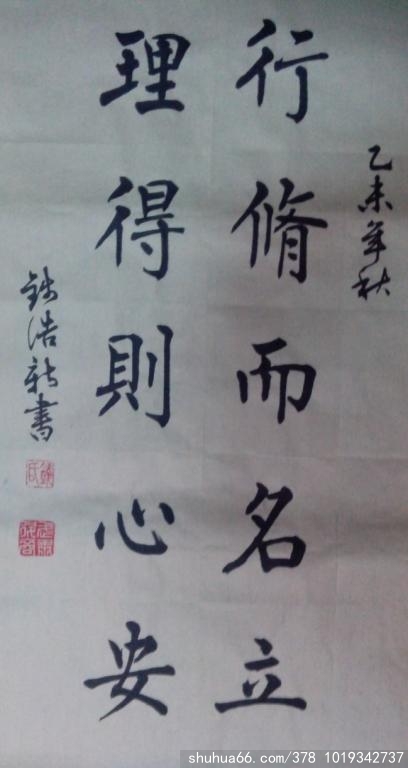 乙未年秋
行脩而名立
理得則心安
浩新書
shuhua66.com/378 1019342737